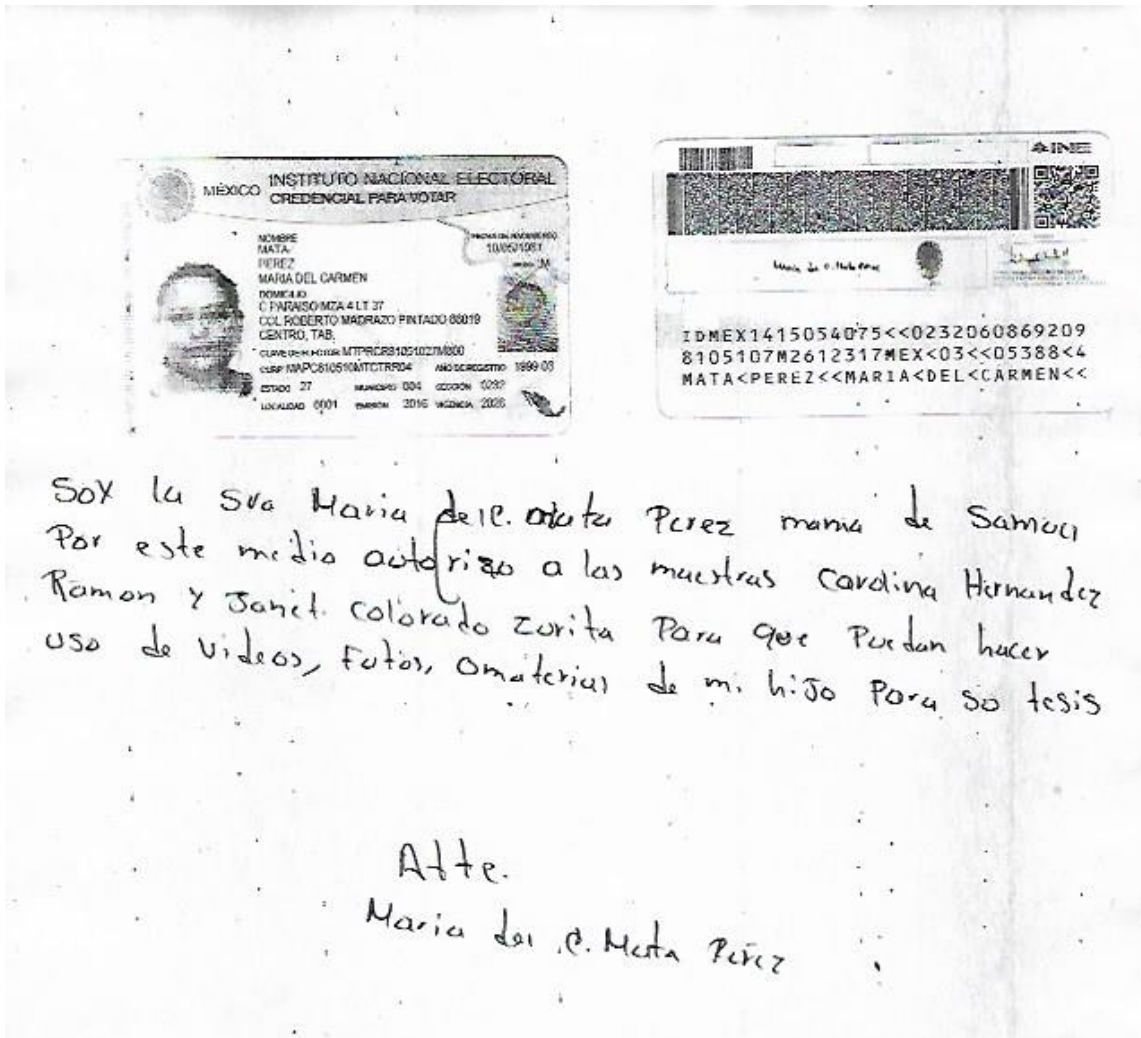 MÉXICO INSTITUTO NACIONAL ELECTORAL
CREDENCIAL PARA VOTAR
NOMBRE
MATA
PEREZ
MARIA DEL CARMEN
DOMICILIO
C PARAISO MZA 4 LT 37
COL ROBERTO MADRAZO PINTADO
CENTRO, TAB.
CURP MAPC810510MTCTRR04 AÑO DE REGISTRO 1999 03
ESTADO 27 MUNICIPIO 004 SECCIÓN
LOCALIDAD 0001 EMISIÓN 2016 VIGENCIA 2026
INE
IDMEX1415054075<<0232060869209
8105107M2612317MEX<03<<05388<4
MATA<PEREZ<<MARIA<DEL<CARMEN<<
Soy la Sra Maria del C. Mata Perez mama de Samuel
Por este medio autorizo a las maestras Carolina Hernandez
Ramon y Janet. Colorado Zurita Para que Puedan hacer
uso de videos, Fotos, de mi hijo Para so tesis
Atte.
Maria del C. Mata Perez